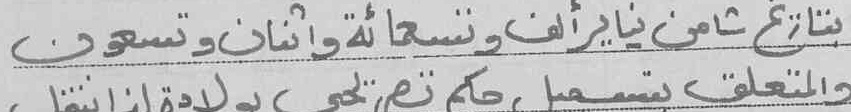 بتاريخ ثامن يناير ألف وتسعمائة واثنان وتسعون
والمتعلق بتسجيل حكم تصريحي بولادة إذا انتقل